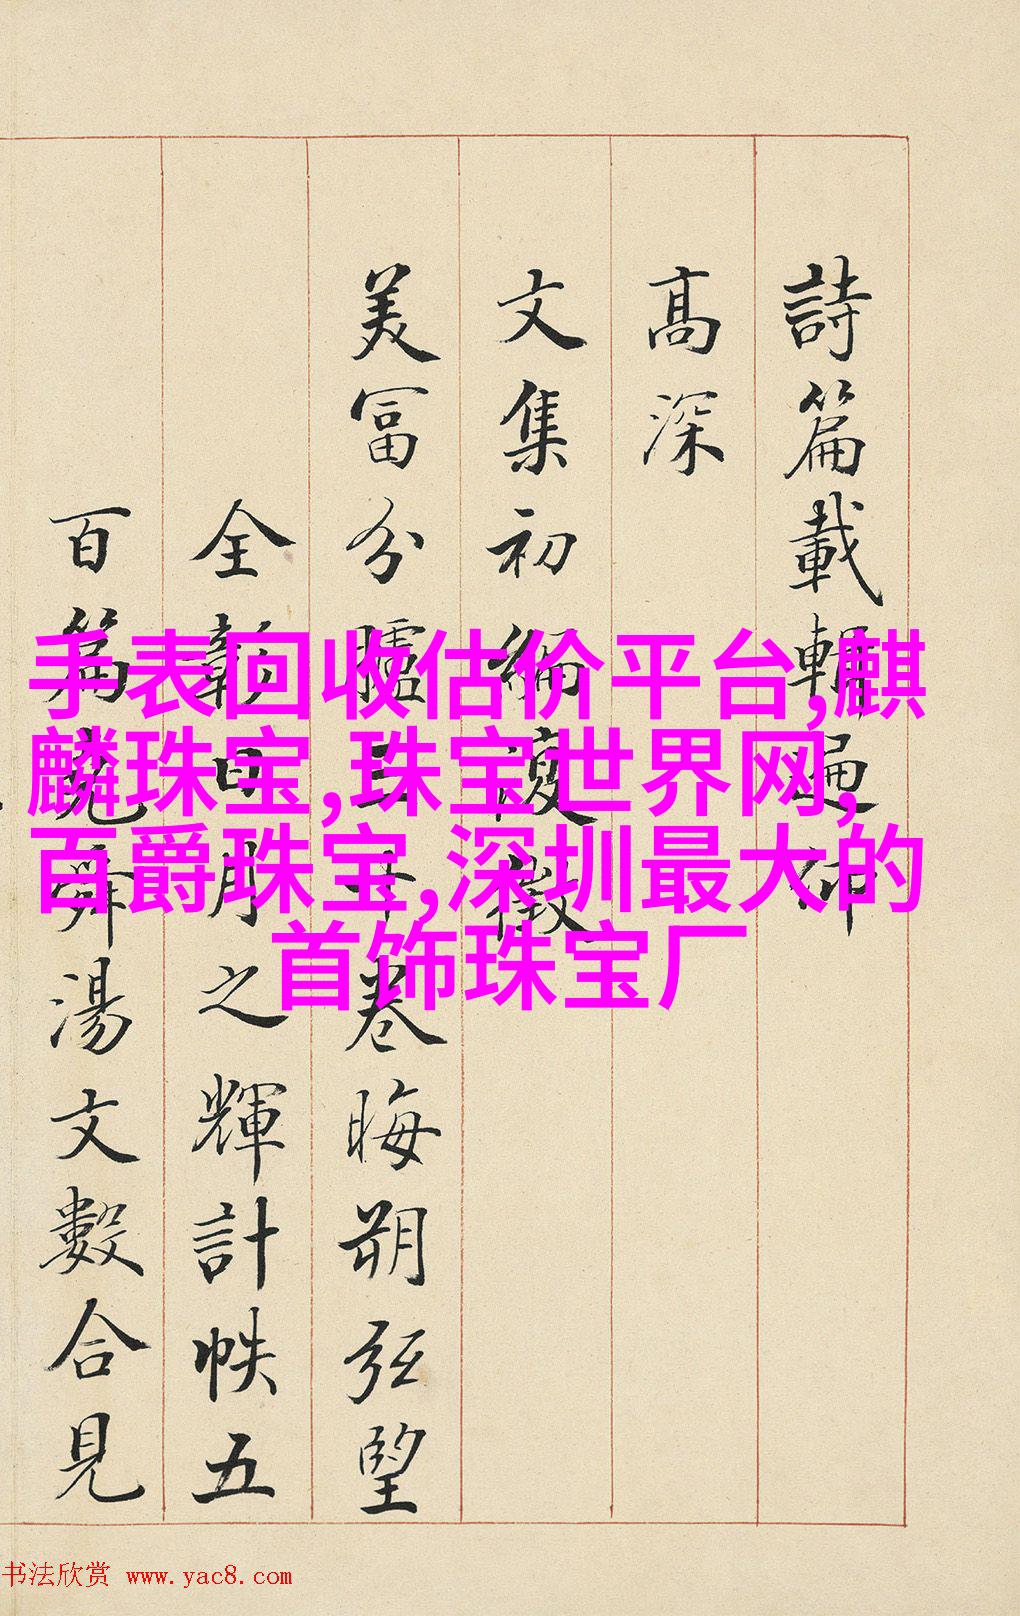 詩篇載輯遍仰
高深
文集初編復徵
美富分臚三十卷晦朔弦望
全彰日月之輝計帙五
百篇堯舜湯文數合見
手表回收估价平台,麒
麟珠宝,珠宝世界网,
百爵珠宝,深圳最大的
首饰珠宝厂
书法欣赏 www.yac8.com